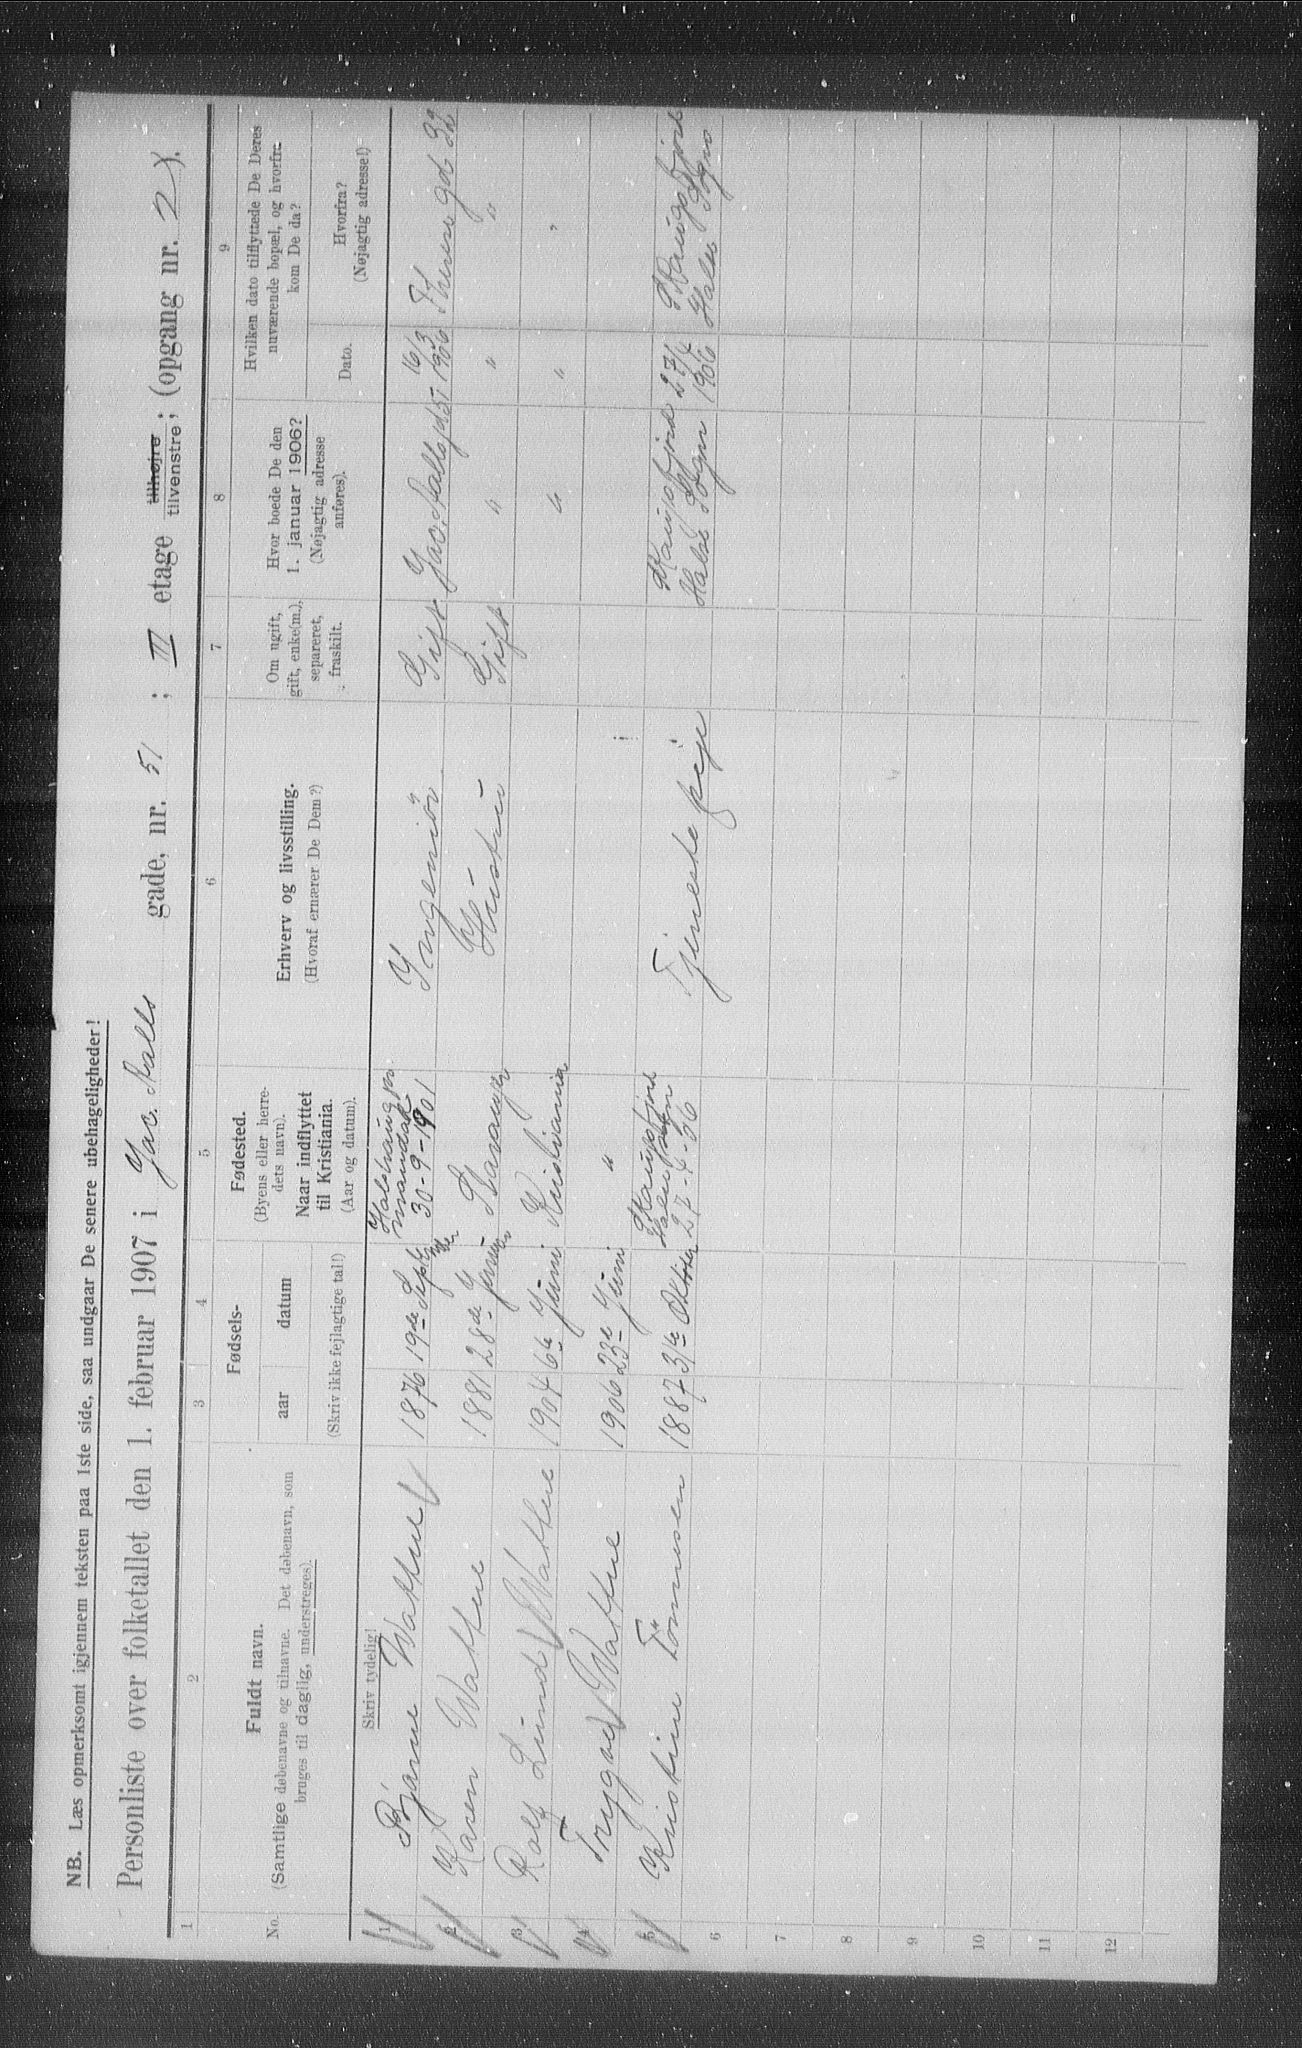 NB. Læs opmerksomt igjennem teksten paa 1ste side, saa undgaar De senere ubehageligheder!
Personliste over folketallet den 1. februar 1907 i Jac. Aalls gade, nr. 51 ; III etage tilhøjre tilvenstre ; (opgang nr. 2).
1 2 3 4 5 6 7 8 9
No.
Fuldt navn.
(Samtlige døbenavne og tilnavne. Det døbenavn, som
bruges til daglig, understreges).
Fødsels-
aar datum
(Skriv ikke fejlagtige tal!)
Fødested.
(Byens eller herre-
dets navn).
Naar indflyttet
til Kristiania.
(Aar og datum).
Erhverv og livsstilling.
(Hvoraf ernærer De Dem?)
Om ugift,
gift, enke(m.),
separeret,
fraskilt.
Hvor boede De den
1. januar 1906?
(Nøjagtig adresse
anføres).
Hvilken dato tilflyttede De Deres
nuværende bopæl, og hvorfra
kom De da?
Dato.
Hvorfra?
(Nøjagtig adresse!)
Skriv tydelig!
1 Bjarne Wattne 1876 19de September 30-9-1901 Ingeniör Gift Jac. Aalls gd 51 16/3 1906 Therese gd 32
2 Karen Wattne 1881 28de Stavanger Hustru Gift " " "
3 Rolf Lund Wattne 1904 6te Juni Kristiania " " "
4 Trygve Wattne 1906 23de Juni "
5 Kristine Tönnesen 1887 31te Oktober 27-4-06 Tjenestepige Halse Sogn 27/4 1906 Halse Sogn
6
7
8
9
10
11
12